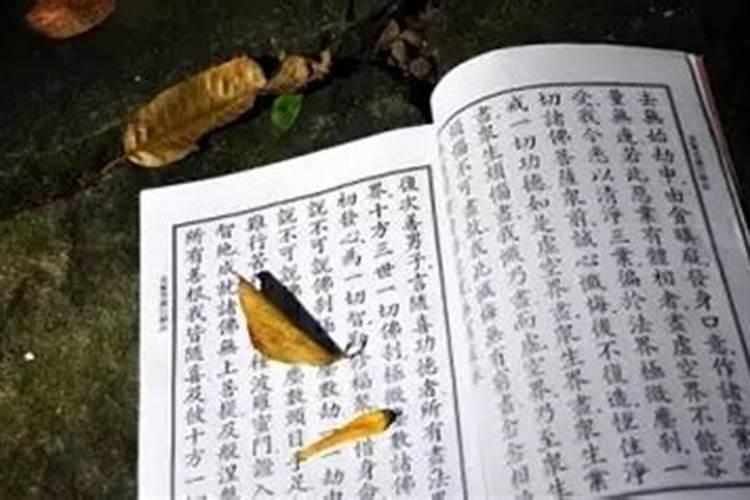 去無始劫中由貪瞋癡發身口意作諸惡業
量無邊若此惡業有體相者盡虛空界不能容
受我今悉以清淨三業徧於法界極微塵剎一
切諸佛菩薩眾前誠心懺悔後不復造恆住淨
戒一切功德如是虛空界盡眾生界盡眾生業
盡眾生煩惱盡我懺乃盡而虛空界乃至眾生
煩惱不可盡故我此懺悔無有窮盡念念相
後次善男子言隨喜功德者所有盡法
界十方三世一切佛剎極微塵數諸佛
切發心為一切智 修福 惜身命
說不可說佛剎極 數劫 劫中
說不可說佛 塵數頭目
難行苦 波羅蜜門證入
智地成就諸佛無上菩提及般涅槃
所有善根我皆隨喜及彼十方一切